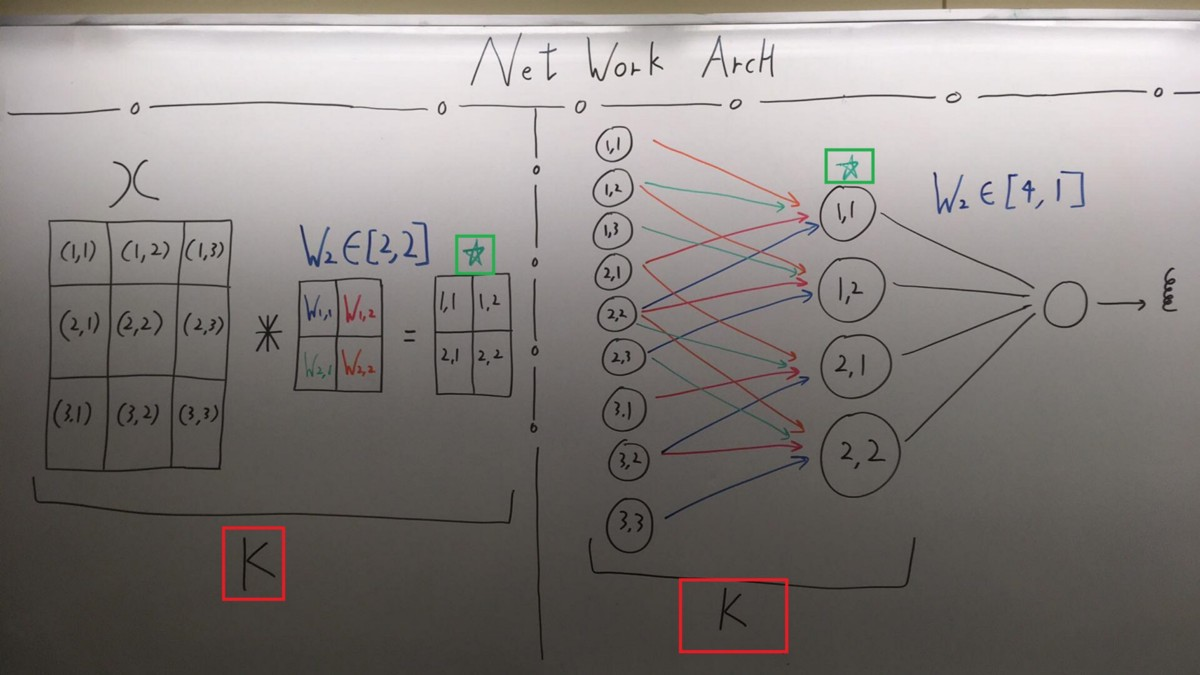 Net Work ArcH
X
(1,1) (1,2) (1,3)
(2,1) (2,2) (2,3)
(3,1) (3,2) (3,3)
*
W₂ ∈ [2,2]
W₁,₁ W₁,₂
W₂,₁ W₂,₂
=
1,1 1,2
2,1 2,2
K
1,1
1,2
1,3
2,1
2,2
2,3
3,1
3,2
3,3
K
1,1
1,2
2,1
2,2
W₂ ∈ [4,1]